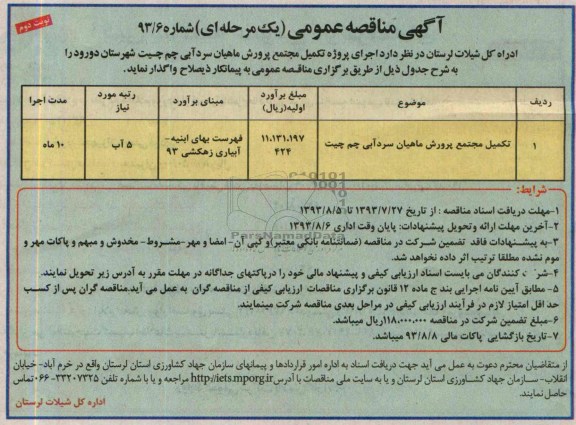 نوبت دوم
آگهی مناقصه عمومی (یک مرحله ای) شماره ۹۳/۶
ادراه کل شیلات لرستان در نظر دارد اجرای پروژه تکمیل مجتمع پرورش ماهیان سردآبی چم چیت شهرستان دورود را
به شرح جدول ذیل از طریق برگزاری مناقصه عمومی به پیمانکار ذیصلاح واگذار نماید.
ردیف موضوع مبلغ برآورد اولیه(ریال) مبنای برآورد رتبه مورد نیاز مدت اجرا
۱ تکمیل مجتمع پرورش ماهیان سردآبی چم چیت ۱۱،۱۳۱،۱۹۷ ۴۲۴ فهرست بهای ابنیه- آبیاری زهکشی ۹۳ ۵ آب ۱۰ ماه
شرایط:
۱-مهلت دریافت اسناد مناقصه : از تاریخ ۱۳۹۳/۷/۲۷ تا ۱۳۹۳/۸/۵
۲-آخرین مهلت ارائه وتحویل پیشنهادات: پایان وقت اداری ۱۳۹۳/۸/۶
۳-به پیشنهادات فاقد تضمین شرکت در مناقصه (ضمانتنامه بانکی معتبر)و کپی آن- امضا و مهر-مشروط- مخدوش و مبهم و پاکات مهر و
موم نشده مطلقا ترتیب اثر داده نخواهد شد.
۴-شر کنندگان می بایست اسناد ارزیابی کیفی و پیشنهاد مالی خود را درپاکتهای جداگانه در مهلت مقرر به آدرس زیر تحویل نمایند.
۵- مطابق آیین نامه اجرایی بند ج ماده ۱۲ قانون برگزاری مناقصات ارزیابی کیفی از مناقصه گران به عمل می آید.مناقصه گران پس از کسب
حد اقل امتیاز لازم در فرآیند ارزیابی کیفی در مراحل بعدی مناقصه شرکت مینمایند.
۶-مبلغ تضمین شرکت در مناقصه ۱۱۸،۰۰۰،۰۰۰ریال میباشد.
۷-تاریخ بازگشایی پاکات مالی ۹۳/۸/۸ میباشد.
از متقاضیان محترم دعوت به عمل می آید جهت دریافت اسناد به اداره امور قراردادها و پیمانهای سازمان جهاد کشاورزی استان لرستان واقع در خرم آباد- خیابان
انقلاب- سازمان جهاد کشاورزی استان لرستان و یا به سایت ملی مناقصات با آدرس http://iets.mporg.ir مراجعه و یا با شماره تلفن ۳۳۲۰۷۳۲۵-۰۶۶ تماس
حاصل نمایند.
اداره کل شیلات لرستان